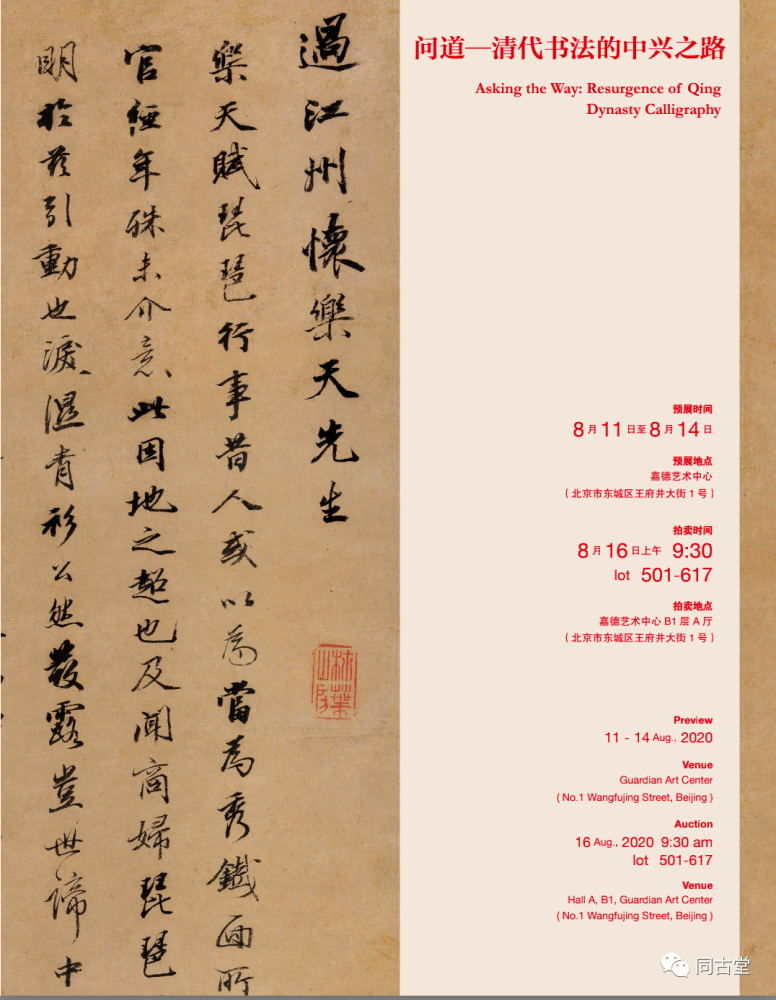 過江州懷樂天先生
樂天賦琵琶行事昔人或以為當為秀鐵面所
官經年殊未介意此因地之超也及聞商婦琵琶
明於茲引動也淚濕青衫公然發露豈世諦中
林葉山房
问道—清代书法的中兴之路
Asking the Way: Resurgence of Qing
Dynasty Calligraphy
预展时间
8月11日至8月14日
预展地点
嘉德艺术中心
（北京市东城区王府井大街1号）
拍卖时间
8月16日上午 9:30
lot 501-617
拍卖地点
嘉德艺术中心 B1 层 A 厅
（北京市东城区王府井大街1号）
Preview
11 - 14 Aug., 2020
Venue
Guardian Art Center
( No.1 Wangfujing Street, Beijing )
Auction
16 Aug., 2020 9:30 am
lot 501-617
Venue
Hall A, B1, Guardian Art Center
( No.1 Wangfujing Street, Beijing )
同古堂